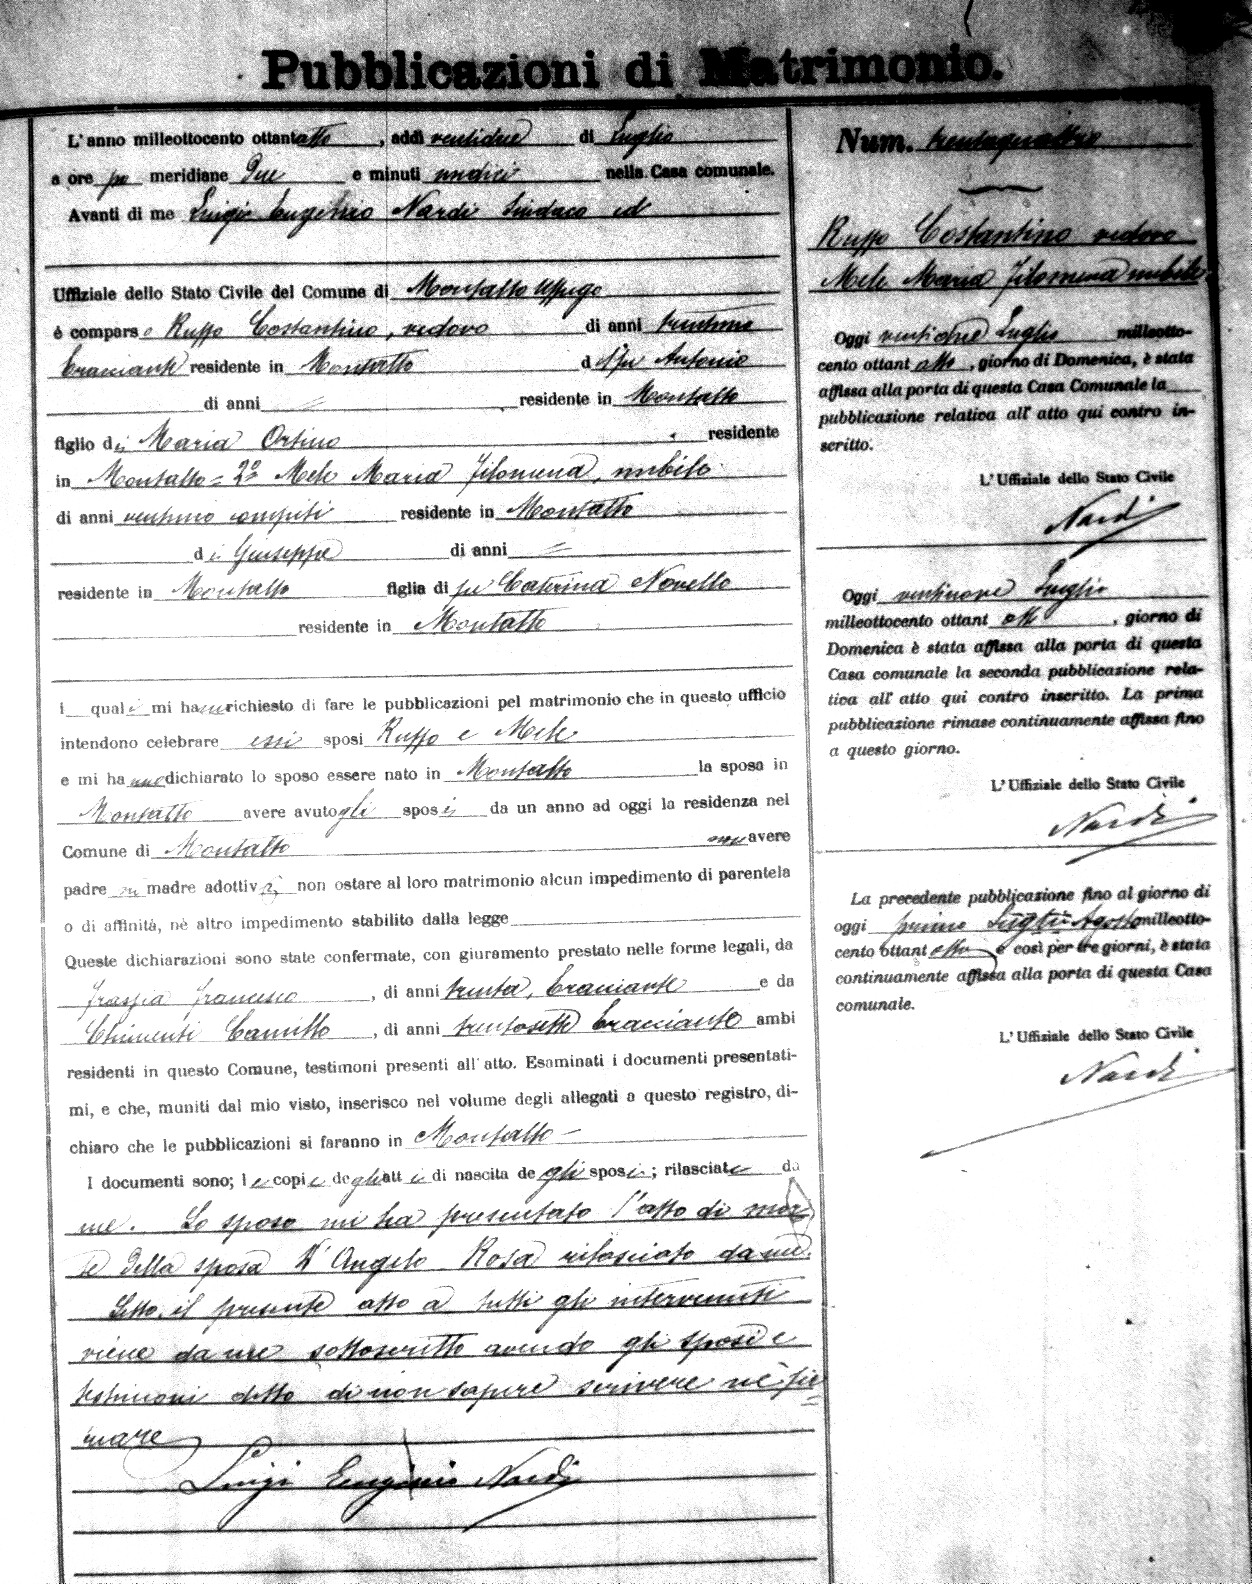 Pubblicazioni di Matrimonio.
L'anno milleottocento ottantotto, addì ventidue di Luglio
a ore po meridiane Due e minuti undici nella Casa comunale.
Avanti di me Luigi Eugenio Nardi Sindaco ed
Uffiziale dello Stato Civile del Comune di Montalto Uffugo
è comparso Ruffo Costantino, vedovo di anni trentuno
bracciante residente in Montalto d i fu Antonio
di anni residente in Montalto
figlio di Maria Orsino residente
in Montalto = 2º Mele Maria Filomena, nubile
di anni ventuno compiti residente in Montalto
di Giuseppe di anni
residente in Montalto figlia di fu Caterina Novello
residente in Montalto
i quali mi hanno richiesto di fare le pubblicazioni pel matrimonio che in questo ufficio
intendono celebrare essi sposi Ruffo e Mele
e mi hanno dichiarato lo sposo essere nato in Montalto la sposa in
Montalto avere avuto gli sposi da un anno ad oggi la residenza nel
Comune di Montalto non avere
padre o madre adottivi, non ostare al loro matrimonio alcun impedimento di parentela
o di affinità, nè altro impedimento stabilito dalla legge
Queste dichiarazioni sono state confermate, con giuramento prestato nelle forme legali, da
Frassia Francesco, di anni trenta, bracciante e da
Chimenti Camillo, di anni trentasette bracciante ambi
residenti in questo Comune, testimoni presenti all'atto. Esaminati i documenti presentati-
mi, e che, muniti dal mio visto, inserisco nel volume degli allegati a questo registro, di-
chiaro che le pubblicazioni si faranno in Montalto –
I documenti sono; le copie degli atti di nascita degli sposi; rilasciate da
me. Lo sposo mi ha presentato l'atto di mor
te della sposa D'Angelo Rosa rilasciato da me.
Letto il presente atto a tutti gli intervenuti
viene da me sottoscritto avendo gli sposi e
testimoni detto di non sapere scrivere nè fir=
mare
Luigi Eugenio Nardi
Num. trentaquattro
Ruffo Costantino vedovo
Mele Maria Filomena nubile
Oggi ventidue Luglio milleotto-
cento ottantotto, giorno di Domenica, è stata
affissa alla porta di questa Casa Comunale la
pubblicazione relativa all'atto qui contro in-
scritto.
L'Uffiziale dello Stato Civile
Nardi
Oggi ventinove Luglio
milleottocento ottantotto, giorno di
Domenica è stata affissa alla porta di questa
Casa comunale la seconda pubblicazione rela-
tiva all'atto qui contro inscritto. La prima
pubblicazione rimase continuamente affissa fino
a questo giorno.
L'Uffiziale dello Stato Civile
Nardi
La precedente pubblicazione fino al giorno di
oggi primo Luglio Agosto milleotto-
cento ottantotto e così per tre giorni, è stata
continuamente affissa alla porta di questa Casa
comunale.
L'Uffiziale dello Stato Civile
Nardi